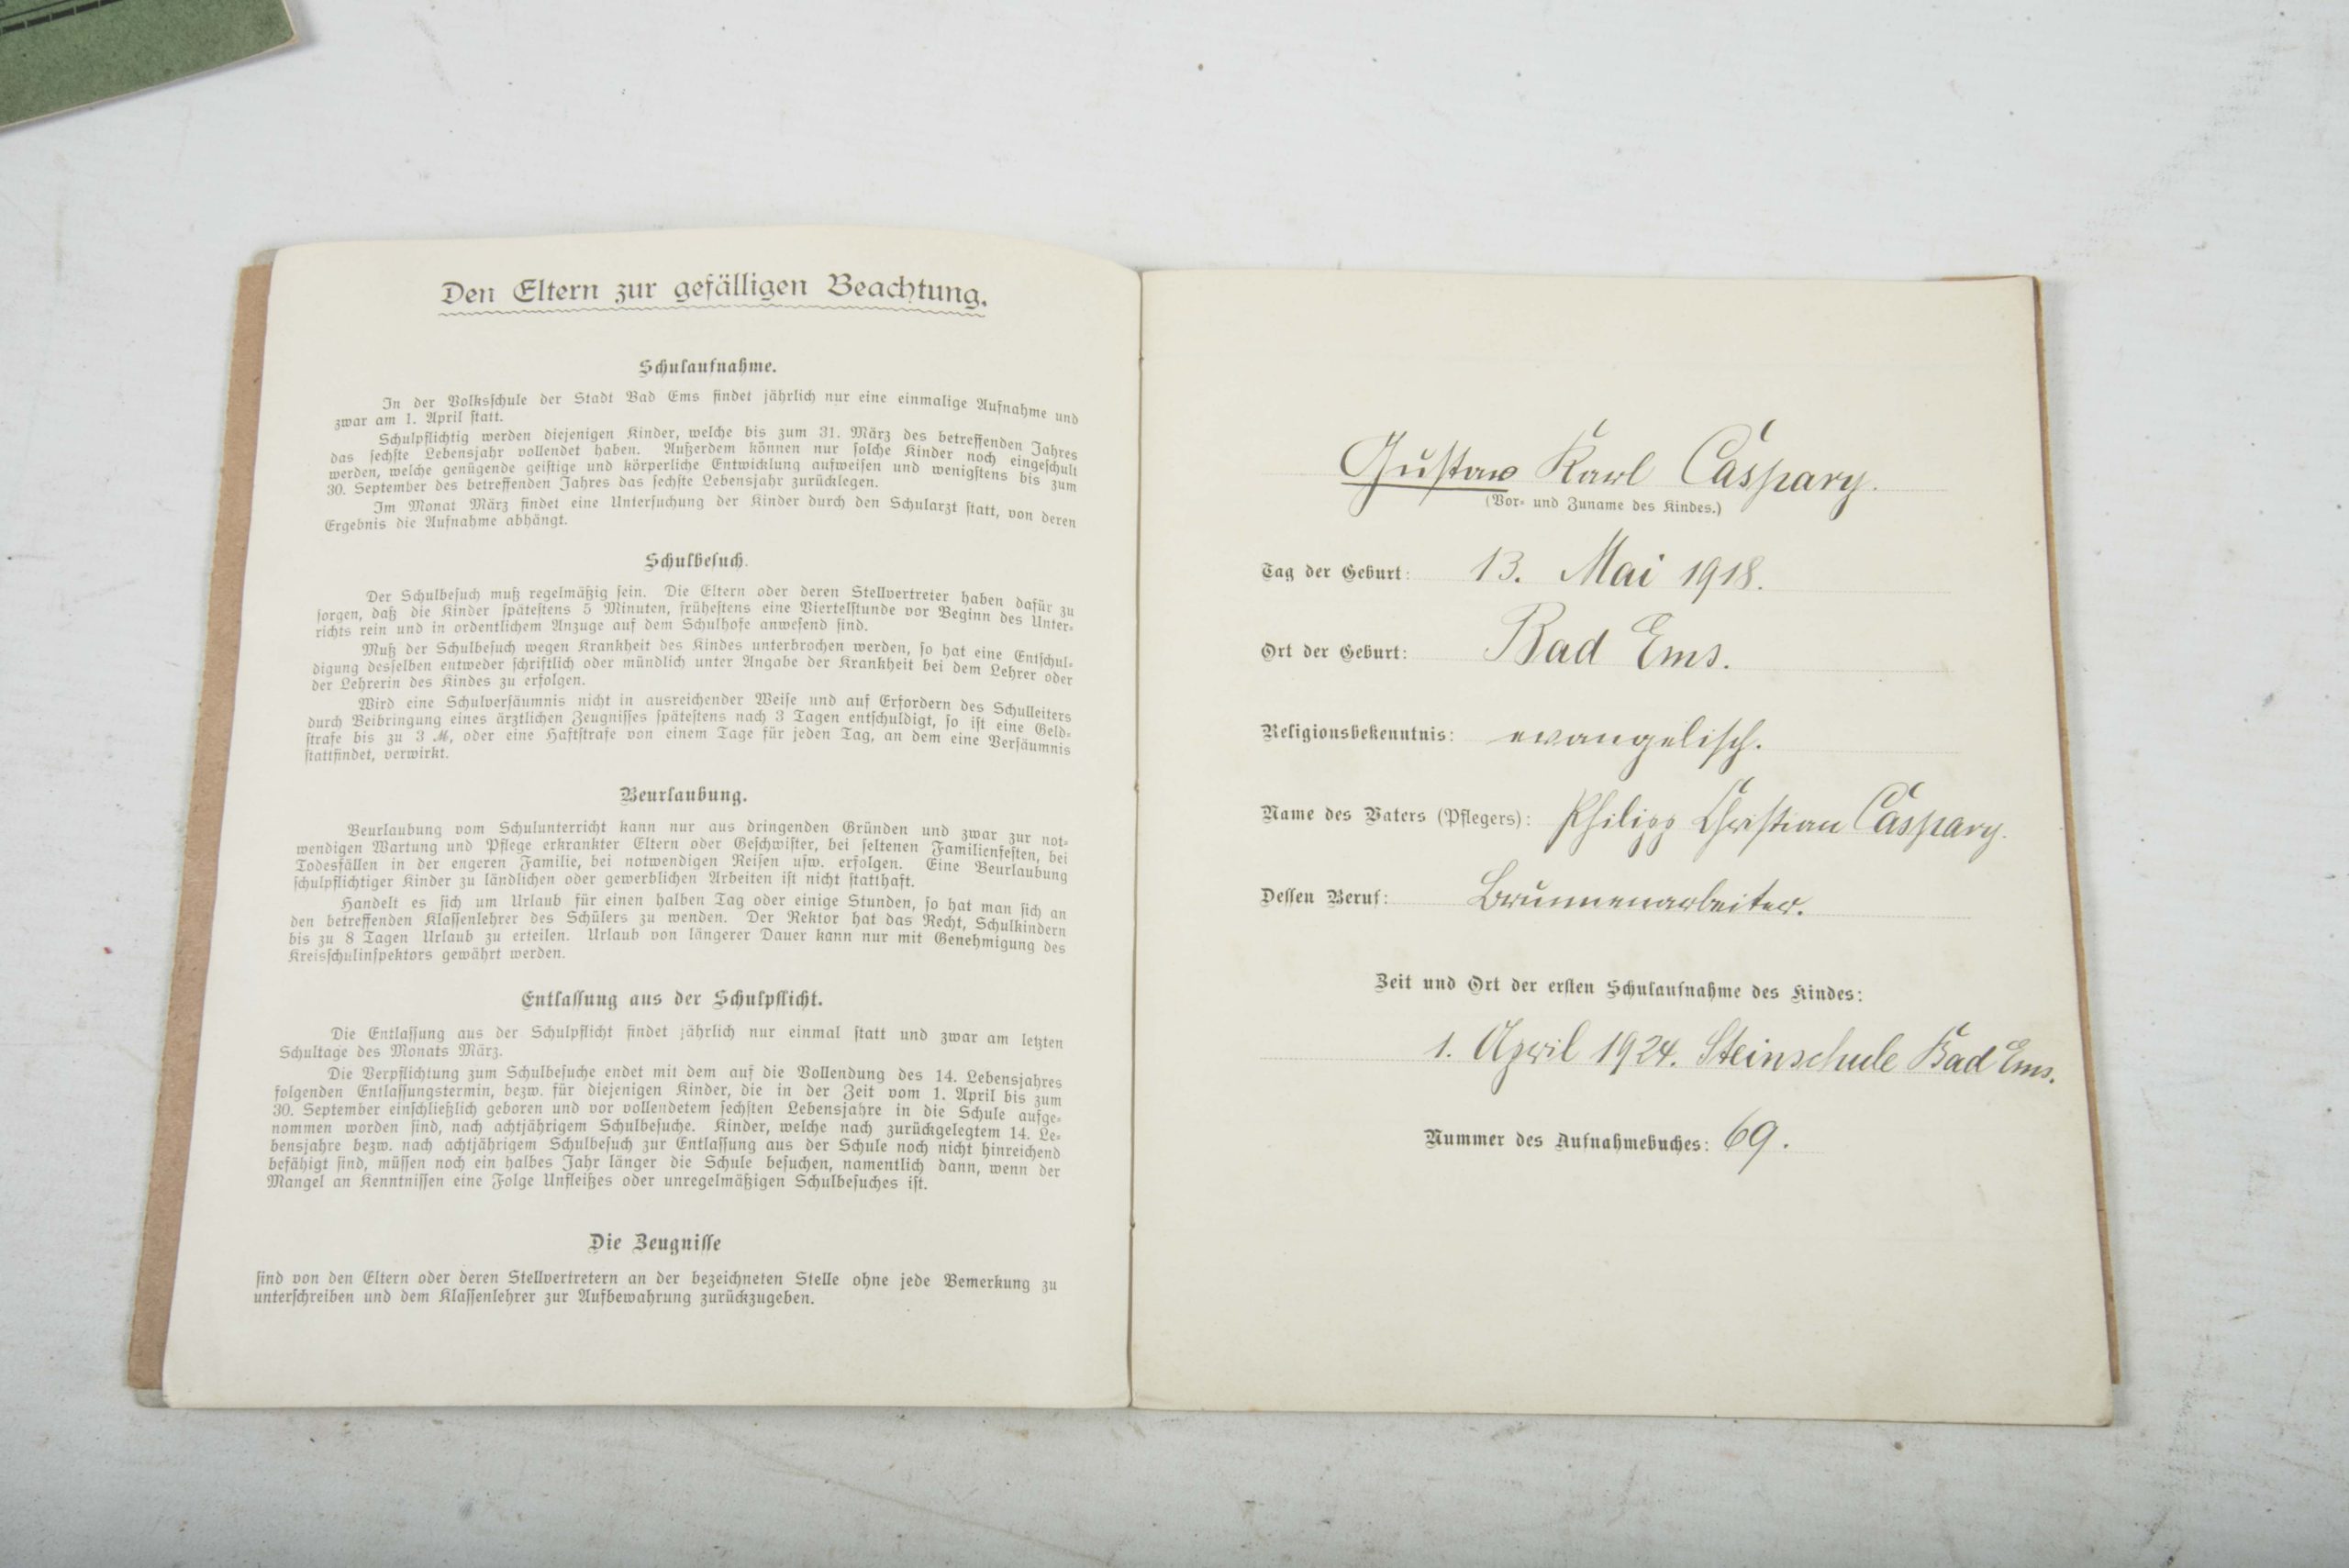 Den Eltern zur gefälligen Beachtung.
Schulaufnahme.
In der Volksschule der Stadt Bad Ems findet jährlich nur eine einmalige Aufnahme und
zwar am 1. April statt.
Schulpflichtig werden diejenigen Kinder, welche bis zum 31. März des betreffenden Jahres
das sechste Lebensjahr vollendet haben. Außerdem können nur solche Kinder noch eingeschult
werden, welche genügende geistige und körperliche Entwicklung aufweisen und wenigstens bis zum
30. September des betreffenden Jahres das sechste Lebensjahr zurücklegen.
Im Monat März findet eine Untersuchung der Kinder durch den Schularzt statt, von deren
Ergebnis die Aufnahme abhängt.
Schulbesuch.
Der Schulbesuch muß regelmäßig sein. Die Eltern oder deren Stellvertreter haben dafür zu
sorgen, daß die Kinder spätestens 5 Minuten, frühestens eine Viertelstunde vor Beginn des Unter-
richts rein und in ordentlichem Anzuge auf dem Schulhofe anwesend sind.
Muß der Schulbesuch wegen Krankheit des Kindes unterbrochen werden, so hat eine Entschul-
digung desselben entweder schriftlich oder mündlich unter Angabe der Krankheit bei dem Lehrer oder
der Lehrerin des Kindes zu erfolgen.
Wird eine Schulversäumnis nicht in ausreichender Weise und auf Erfordern des Schulleiters
durch Beibringung eines ärztlichen Zeugnisses spätestens nach 3 Tagen entschuldigt, so ist eine Geld-
strafe bis zu 3 ℳ, oder eine Haftstrafe von einem Tage für jeden Tag, an dem eine Versäumnis
stattfindet, verwirkt.
Beurlaubung.
Beurlaubung vom Schulunterricht kann nur aus dringenden Gründen und zwar zur not-
wendigen Wartung und Pflege erkrankter Eltern oder Geschwister, bei seltenen Familienfesten, bei
Todesfällen in der engeren Familie, bei notwendigen Reisen usw. erfolgen. Eine Beurlaubung
schulpflichtiger Kinder zu ländlichen oder gewerblichen Arbeiten ist nicht statthaft.
Handelt es sich um Urlaub für einen halben Tag oder einige Stunden, so hat man sich an
den betreffenden Klassenlehrer des Schülers zu wenden. Der Rektor hat das Recht, Schulkindern
bis zu 8 Tagen Urlaub zu erteilen. Urlaub von längerer Dauer kann nur mit Genehmigung des
Kreisschulinspektors gewährt werden.
Entlassung aus der Schulpflicht.
Die Entlassung aus der Schulpflicht findet jährlich nur einmal statt und zwar am letzten
Schultage des Monats März.
Die Verpflichtung zum Schulbesuche endet mit dem auf die Vollendung des 14. Lebensjahres
folgenden Entlassungstermin, bezw. für diejenigen Kinder, die in der Zeit vom 1. April bis zum
30. September einschließlich geboren und vor vollendetem sechsten Lebensjahre in die Schule aufge-
nommen worden sind, nach achtjährigem Schulbesuche. Kinder, welche nach zurückgelegtem 14. Le-
bensjahre bezw. nach achtjährigem Schulbesuch zur Entlassung aus der Schule noch nicht hinreichend
befähigt sind, müssen noch ein halbes Jahr länger die Schule besuchen, namentlich dann, wenn der
Mangel an Kenntnissen eine Folge Unfleißes oder unregelmäßigen Schulbesuches ist.
Die Zeugnisse
sind von den Eltern oder deren Stellvertretern an der bezeichneten Stelle ohne jede Bemerkung zu
unterschreiben und dem Klassenlehrer zur Aufbewahrung zurückzugeben.
Gustav Karl Caspary.
(Vor- und Zuname des Kindes.)
Tag der Geburt: 13. Mai 1918.
Ort der Geburt: Bad Ems.
Religionsbekenntnis: evangelisch.
Name des Vaters (Pflegers): Philipp Christian Caspary.
Dessen Beruf: Brunnenarbeiter.
Zeit und Ort der ersten Schulaufnahme des Kindes:
1. April 1924. Steinschule Bad Ems.
Nummer des Aufnahmebuches: 69.